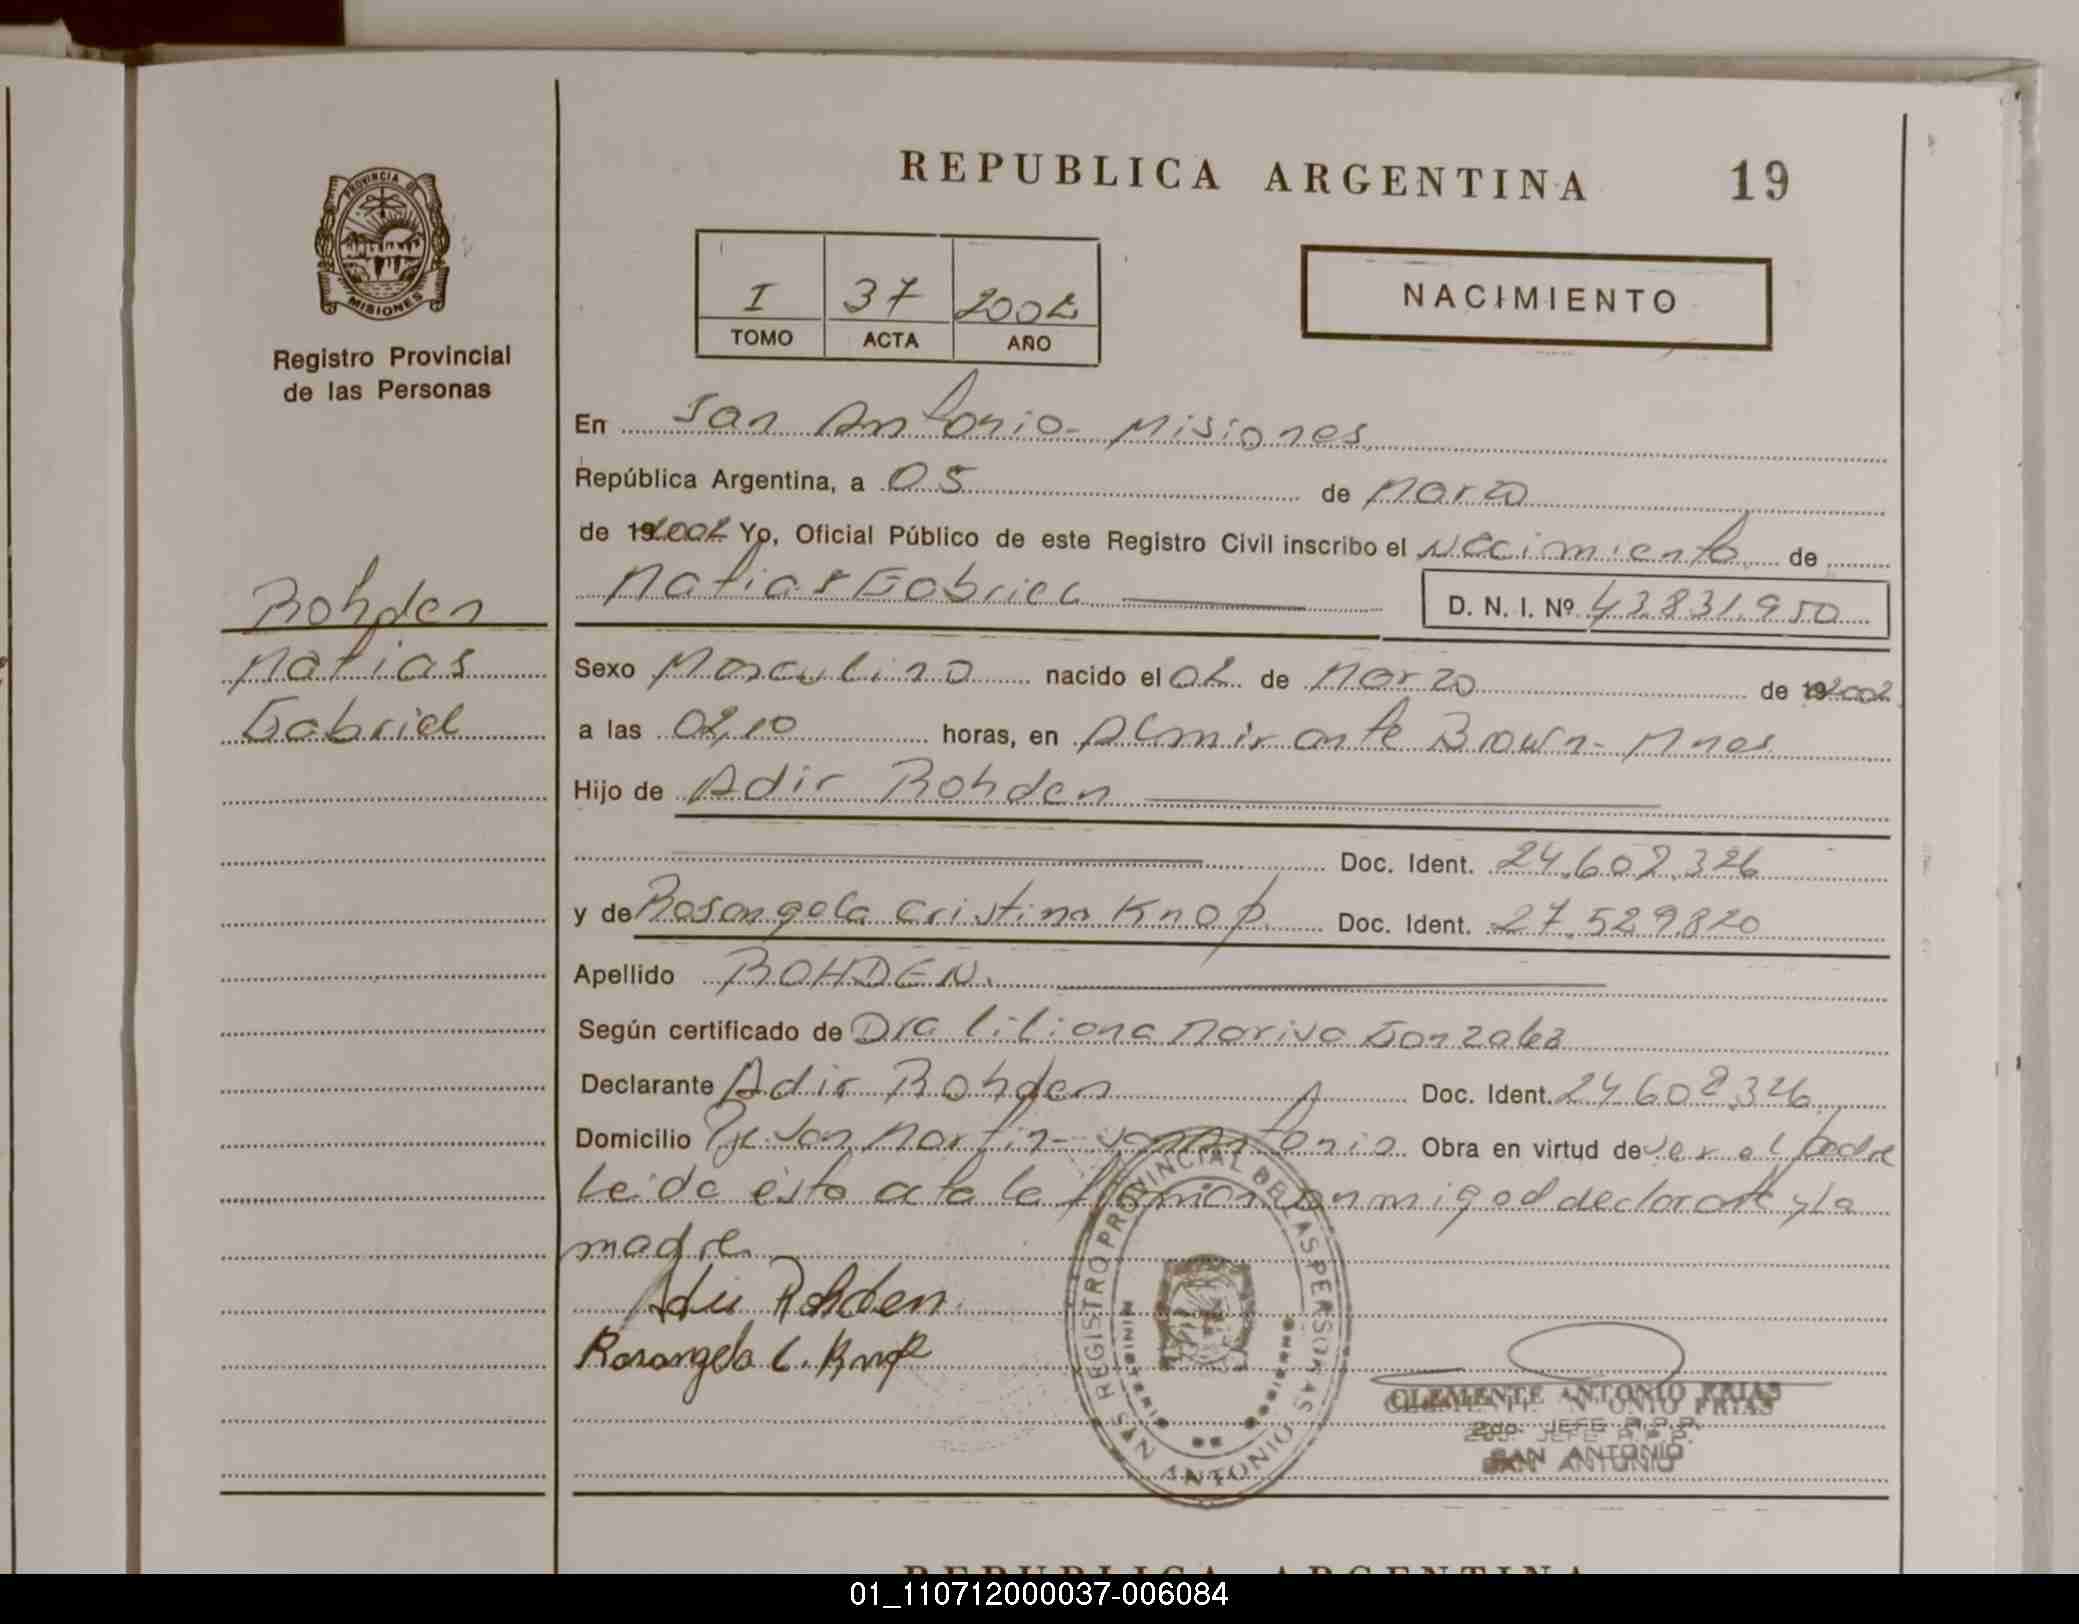 REPUBLICA ARGENTINA 19
PROVINCIA DE
MISIONES
Registro Provincial
de las Personas
I 37 2002
TOMO ACTA AÑO
NACIMIENTO
En San Antonio - Misiones
República Argentina, a 05 de Marzo
de 192002 Yo, Oficial Público de este Registro Civil inscribo el Nacimiento de
Matias Gabriel
D. N. I. Nº 43.831.950
Rohden
Matias
Gabriel
Sexo Masculino nacido el 02 de Marzo de 192002
a las 02,10 horas, en Almirante Brown - Mnes
Hijo de Adir Rohden
Doc. Ident. 24.602.326
y de Rosangela Cristina Knop Doc. Ident. 27.529.820
Apellido ROHDEN.
Según certificado de Dra Liliana Gonzalez
Declarante Adir Rohden Doc. Ident. 24.602.326
Domicilio Pje San Martin - San Antonio Obra en virtud de ser el padre
Leida esta acta la firman conmigo el declarante y La
madre
Adir Rohden
Rosangela C. Knop
REGISTRO PROVINCIAL DE LAS PERSONAS
SAN ANTONIO
MISIONES
CLEMENTE ANTONIO FRIAS
2do. JEFE R.P.P.
SAN ANTONIO
REPUBLICA ARGENTINA
01_110712000037-006084